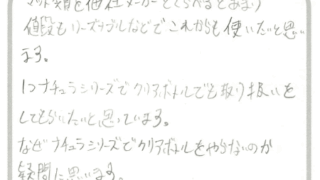 マット類を他社メーカーとくらべるとあまり
値段もリーズナブルなどでこれからも使いたいと思い
ます。
1つナチュラシリーズでクリアボトルでも取り扱いを
してもらいたいと思っています。
なぜナチュラシリーズでクリアボトルをやらないのか
疑問に思います。